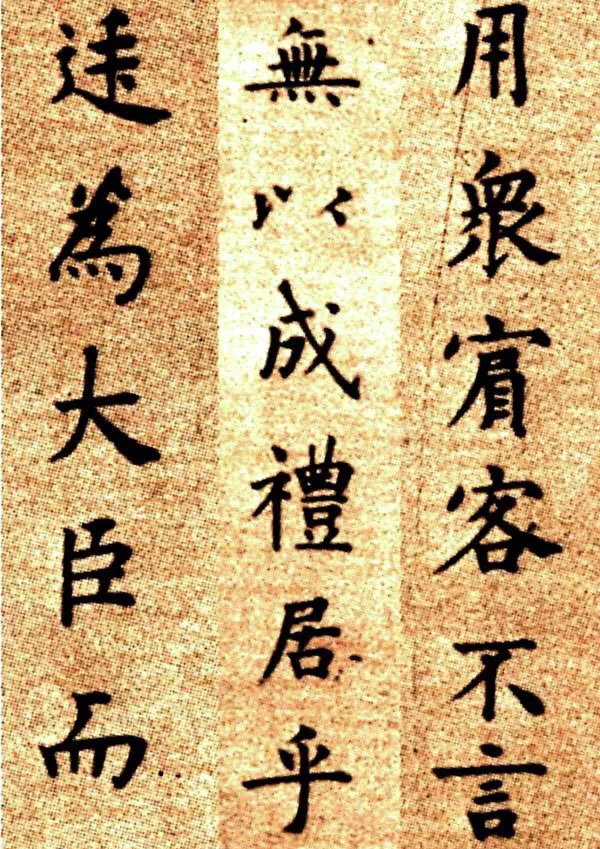 用眾賓客不言
無以成禮居乎
為大臣而